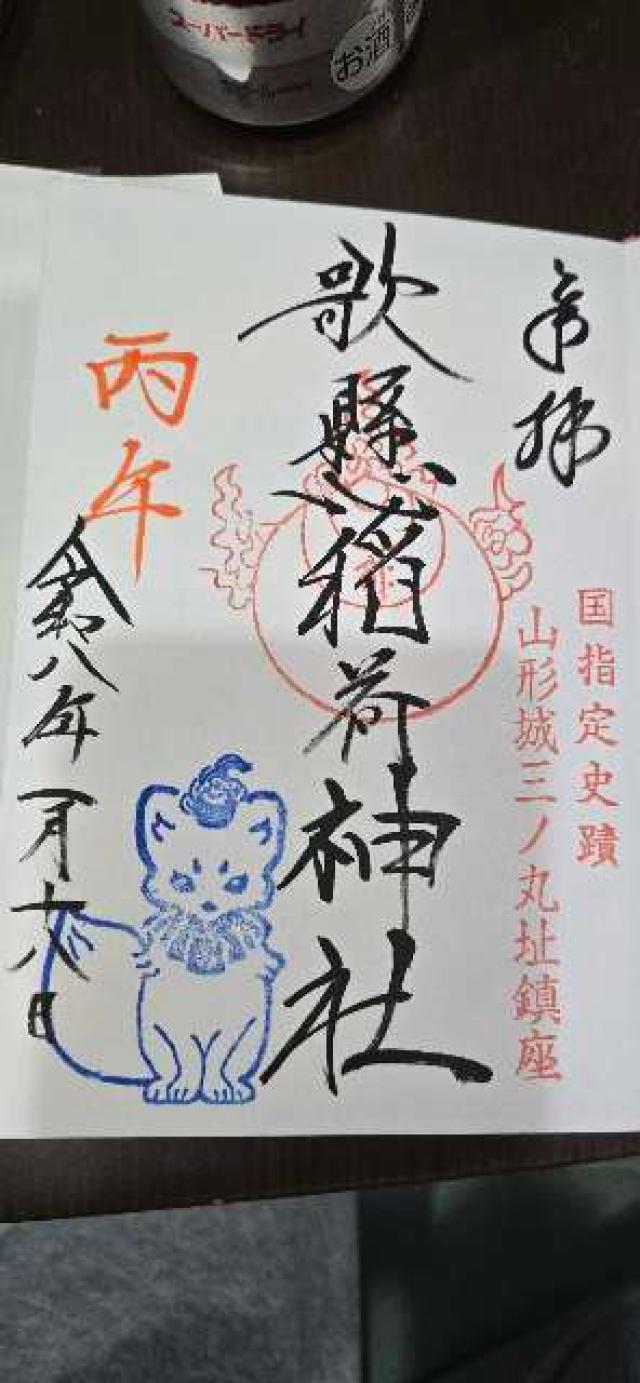 スーパードライ
お酒
奉拝
国指定史蹟
山形城三ノ丸址鎮座
歌懸稲荷神社
丙午
令和八年一月十八日